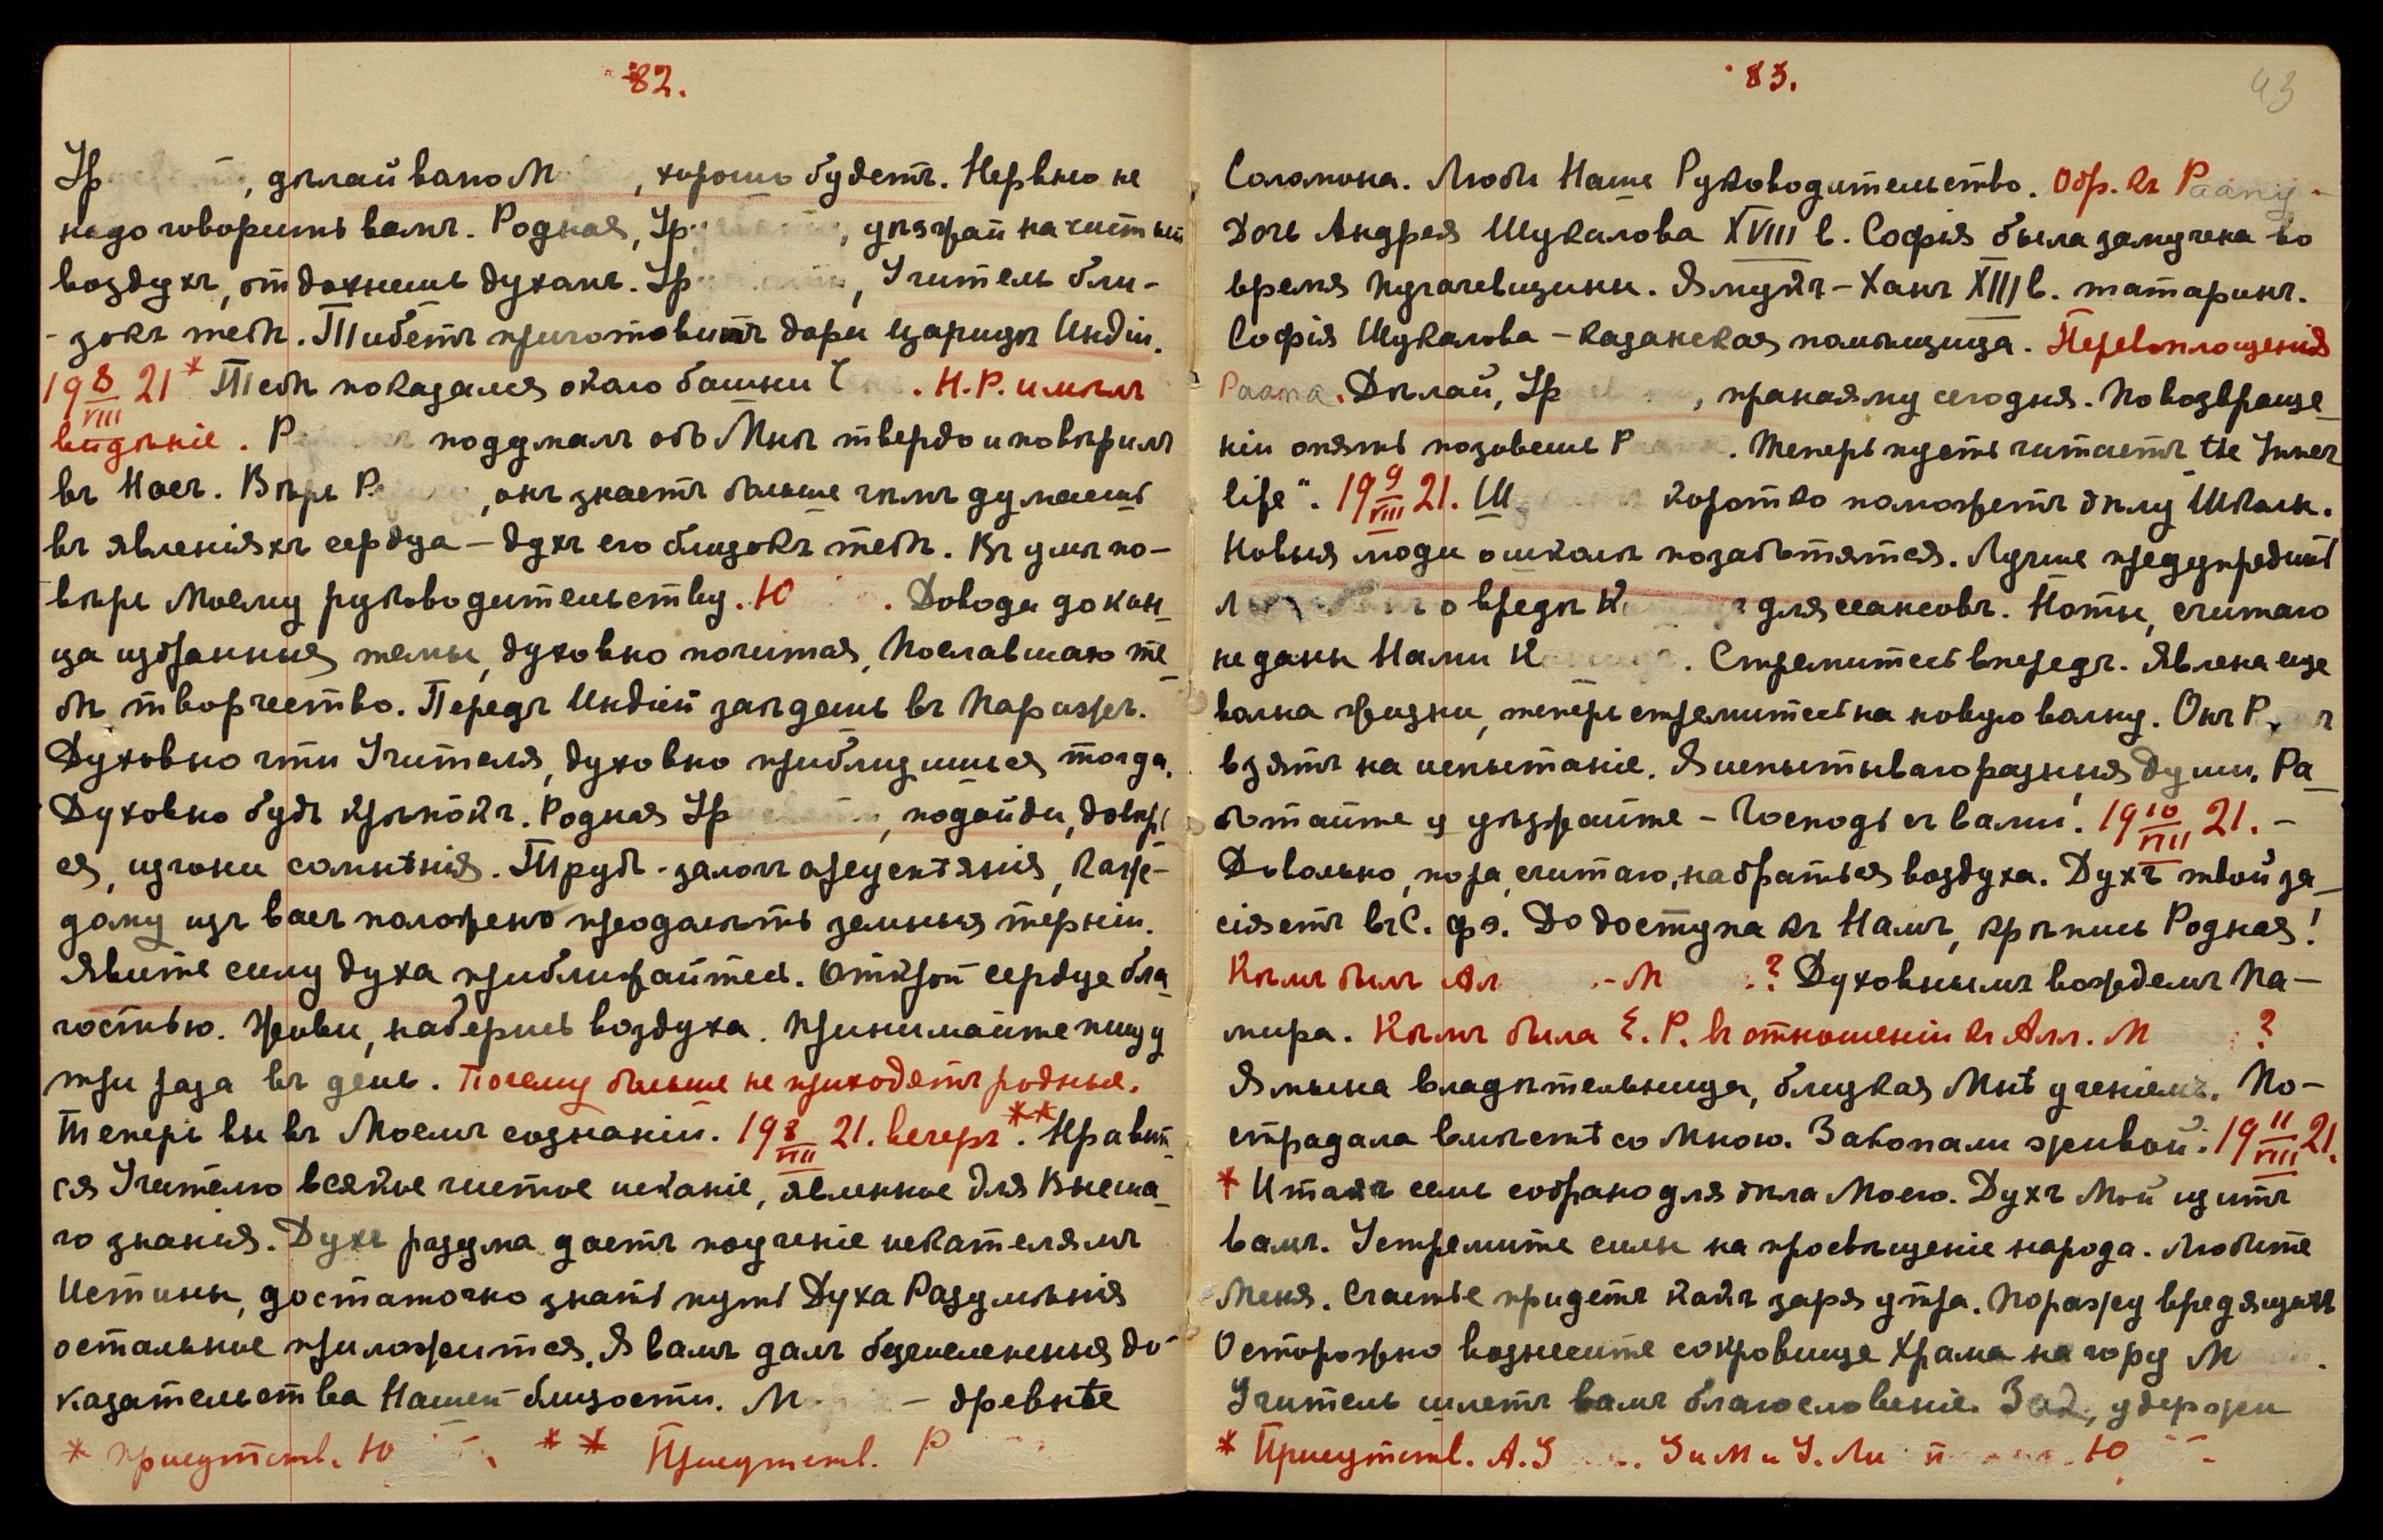 82.
Ур, дѣлай вапо М, хорошо будетъ. Нервно не
надо говорить вамъ. Родная, Ур, уѣзжай на чистый
воздухъ, отдохнешь духомъ. Ур, Учитель бли-
-зокъ тебѣ. Тибетъ приготовитъ дары царицѣ Индіи.
19 8/VIII 21* Тебѣ показался около башни. Н.Р. имѣлъ
видѣніе. Р подумалъ обо Мнѣ твердо и повѣрилъ
въ Насъ. Вѣрь Р, онъ знаетъ больше чѣмъ думаешь
въ явленіяхъ сердца – духъ его близокъ тебѣ. Въ умѣ по-
вѣрь Моему руководительству. Ю. Доводи до кон-
ца избранныя темы, духовно почитая, Пославшаго те
бѣ творчество. Передъ Индіей заѣдешь въ Парижъ.
Духовно чти Учителя, духовно приблизишься тогда.
Духовно будь крѣпокъ. Родная Ур, подойди, довѣрь
ся, изгони сомнѣнія. Трудъ - залогъ, каж-
дому изъ васъ положено преодолѣть земныя терніи.
Явите силу духа приближайтесь. Открой сердце бла-
гостью. Живи, наберись воздуха. Принимайте пищу
три раза въ день. Почему больше не приходятъ родные.
Теперь вы въ Моемъ сознаніи. 19 8/VIII 21. вечеръ.** Нравит-
ся Учителю всякое чистое исканіе, явленное для Внѣшня-
го знанія. Духъ разума даетъ поученіе искателямъ
Истины, достаточно знать путь Духа Разумѣнія
остальное приложится. Я вамъ далъ безчисленныя до-
казательства Нашей близости. М – древнѣе
* присутств. Ю. ** Присутств. Р
83.
43
Соломона. Люби Наше Руководительство. Обр. къ Рааму.
Дочь Андрея Шукалова XVIII в. Софія была замучена во
время пугачевщины. Ямуйлъ – Ханъ XIII в. татаринъ.
Софія Шукалова – казанская помѣщица. Перевоплощенія
Раама. Дѣлай, Ур, пранаяму сегодня. По возвраще-
ніи опять позовешь Р. Теперь пусть читаетъ the Inner
life". 19 9/VIII 21. Ш коротко поможетъ дѣлу Школы.
Новыя люди о школѣ позаботятся. Лучше предупредить
Л о вредѣ К для сеансовъ. Ноты, считаю
не даны Нами К. Стремитесь впередъ. Явлена еще
волна жизни, теперь стремитесь на новую волну. Онъ Р
взятъ на испытаніе. Я испытываю разныя души. Ра-
ботайте и уѣзжайте – Господь съ вами! 19 10/VIII 21. –
Довольно, пора, считаю, набраться воздуха. Духъ твой за-
сіяетъ въ С. фэ. До доступа къ Намъ, крѣпись Родная!
Кѣмъ былъ Ал - М ? Духовнымъ вождемъ Па-
мира. Кѣмъ была Е. Р. въ отношеніи къ Алл. М ?
Ямына владѣтельница, близкая Мнѣ ученіемъ. По-
страдала вмѣстѣ со Мною. Закопали живой. 19 11/VIII 21.
* Итакъ семь собрано для дѣла Моего. Духъ Мой щитъ
вамъ. Устремите силы на просвѣщеніе народа. Любите
Меня. Счастье придетъ какъ заря утра. Поражу вредящихъ
Осторожно вознесите сокровище Храма на гору М.
Учитель шлетъ вамъ благословеніе., удержи
* Присутств. А. З. З и М и У. Ли Ю